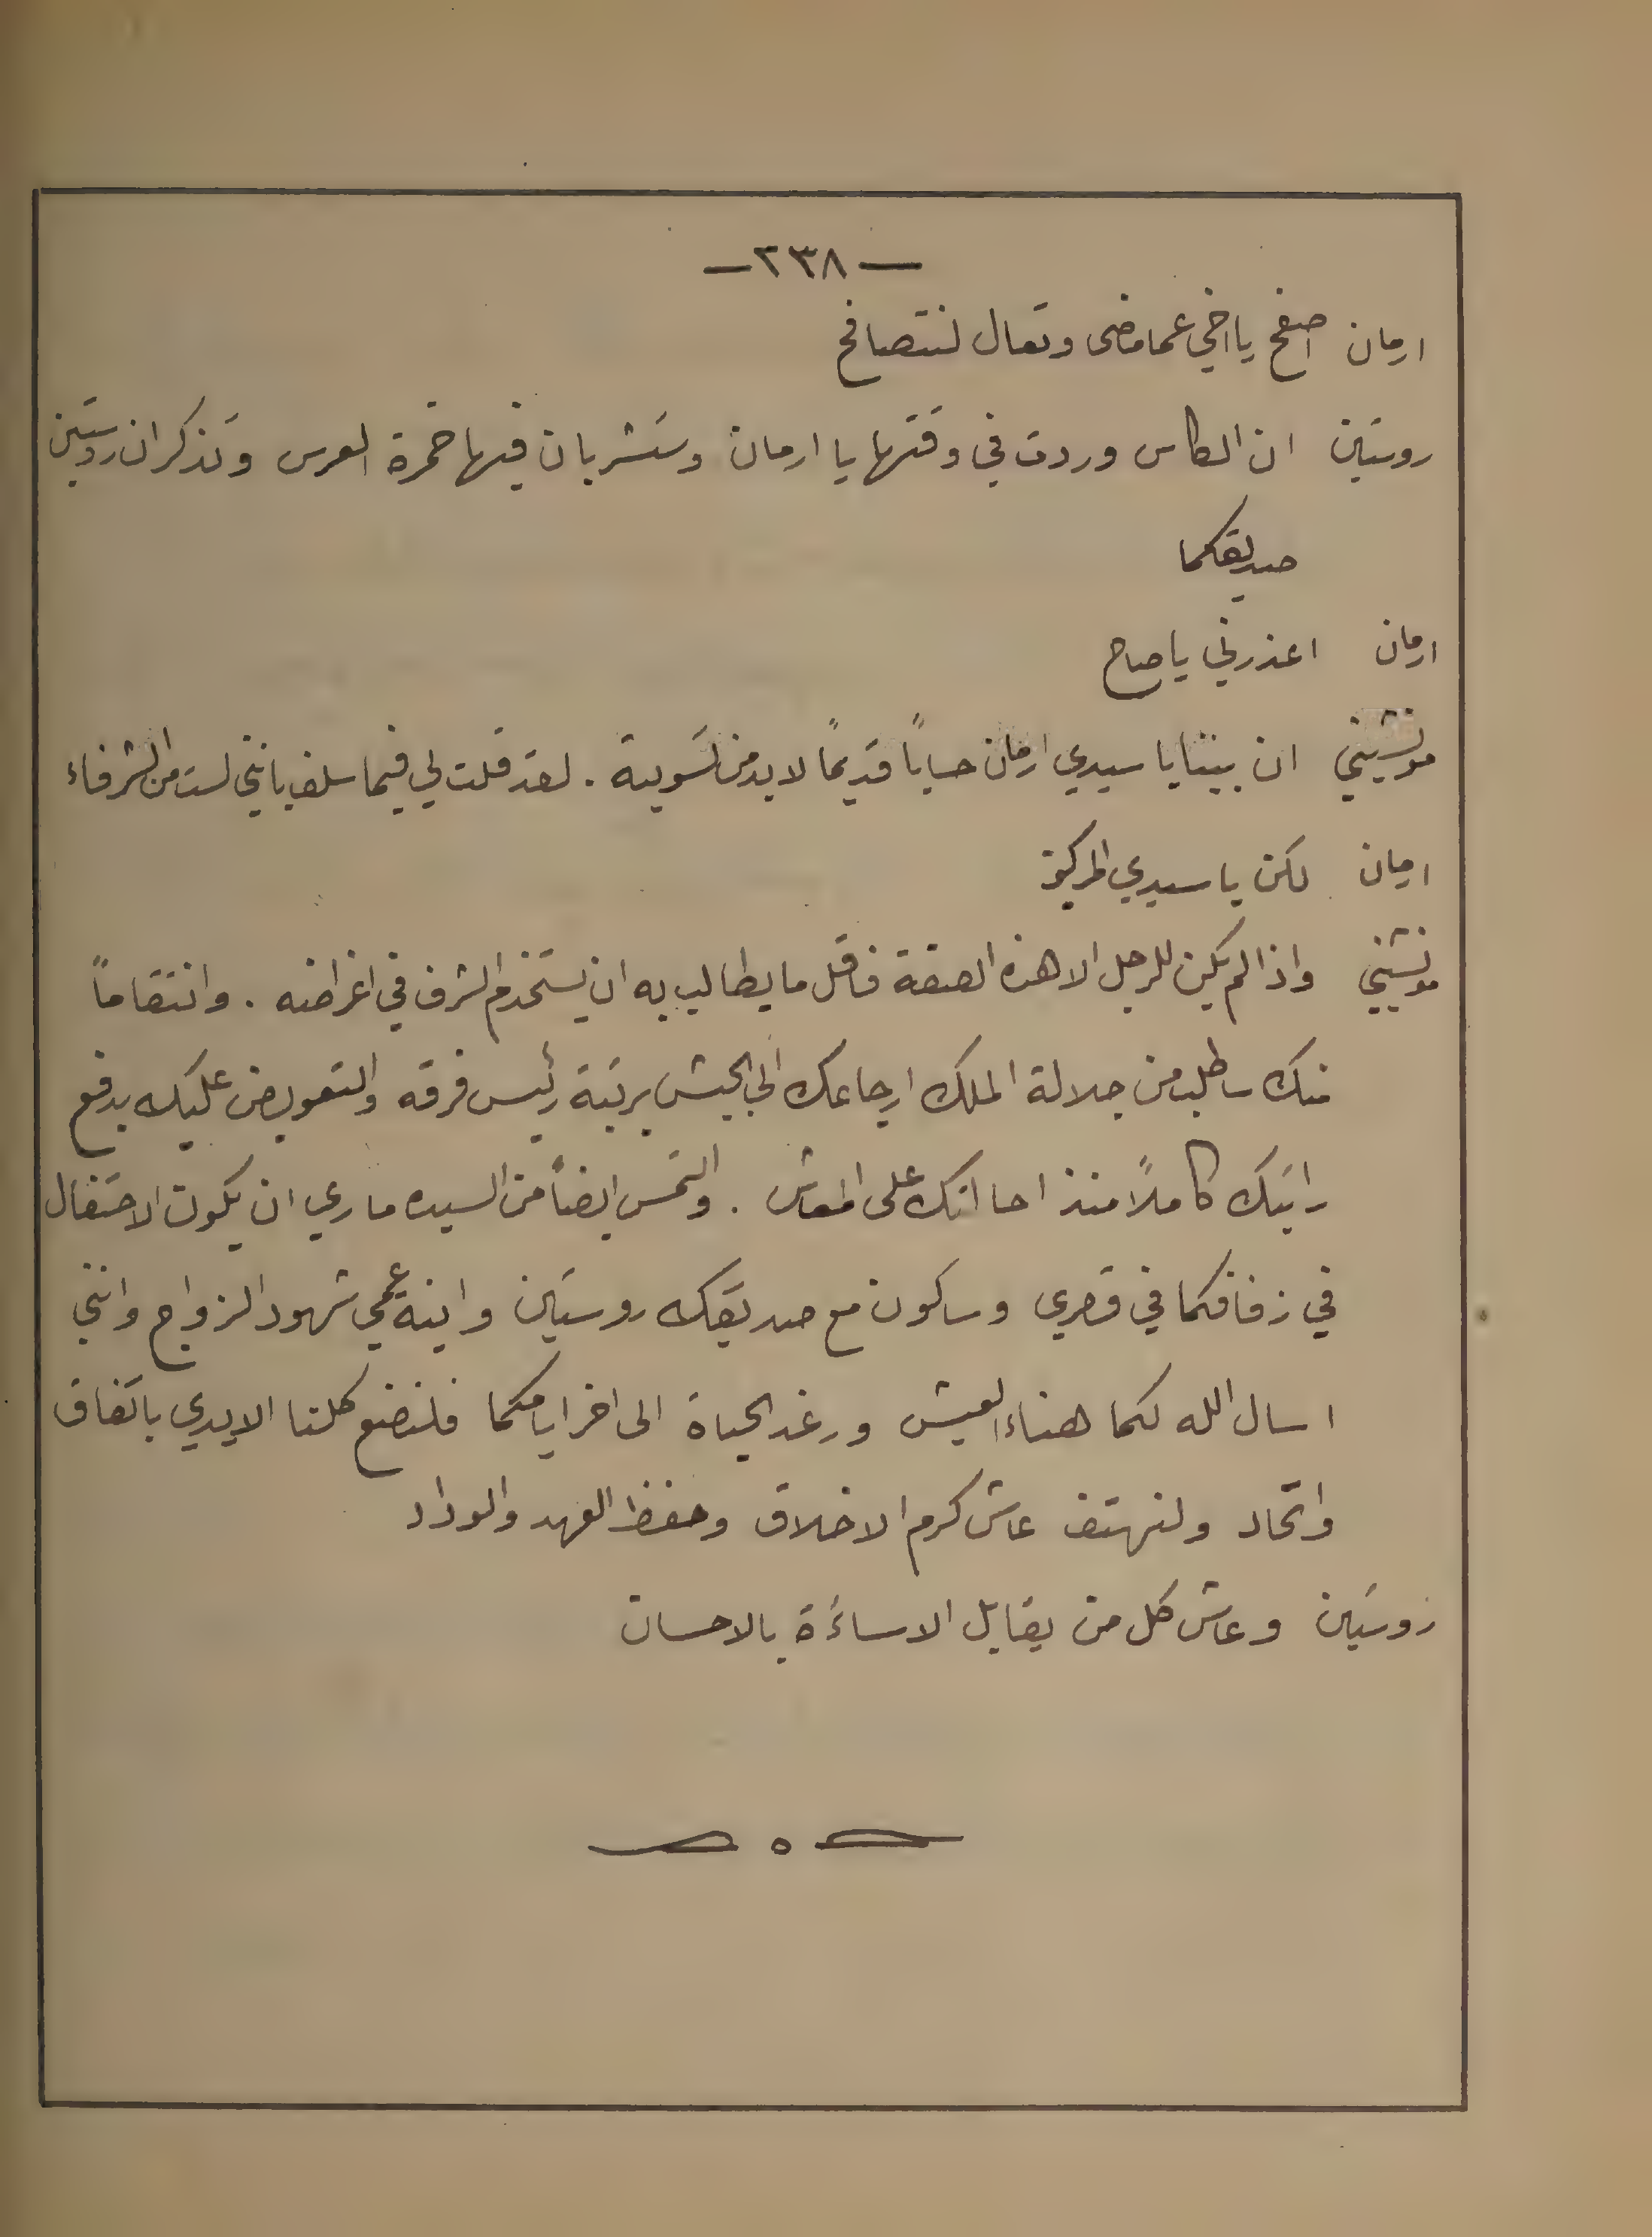 —٢٣٨—
ارمان اصفح يا اخي عما مضى وتعال لنتصافح
روستين ان الكاس وردت في وقتها يا ارمان وستشربان فيها خمرة العرس وتذكران روستين
صديقكما
ارمان اعذرني يا صاح
مونشيني ان بيننا يا سيدي ارمان حساباً قديمًا لا بد من تسوية . لقد قلت لي فيما سلف بانني لست من الشرفاء
ارمان لكن يا سيدي المركيز
مونشيني واذا لم يكن للرجل الا هذه الصفة فاقل ما يطالب به ان يستخدم الشرف في اغراضه . وانتقاماً
منك ساطلب من جلالة الملك ارجاعك الى الجيش برتبة رئيس فرقه والتعويض عليك بدفع
راتبك كاملاً منذ احالتك على المعاش . والتمس ايضاً من السيده ماري ان يكون الاحتفال
في زفافكما في قصري وساكون مع صديقك روستين وابنة عمي شهود الزواج وانني
اسال الله لكما هناء العيش ورغد الحياة الى اخر ايامكما فلنضع كلنا الايدي باتفاق
واتحاد ولنهتف عاش كرم الاخلاق وحفظ العهد والوداد
روستين وعاش كل من يقابل الاساءة بالاحسان